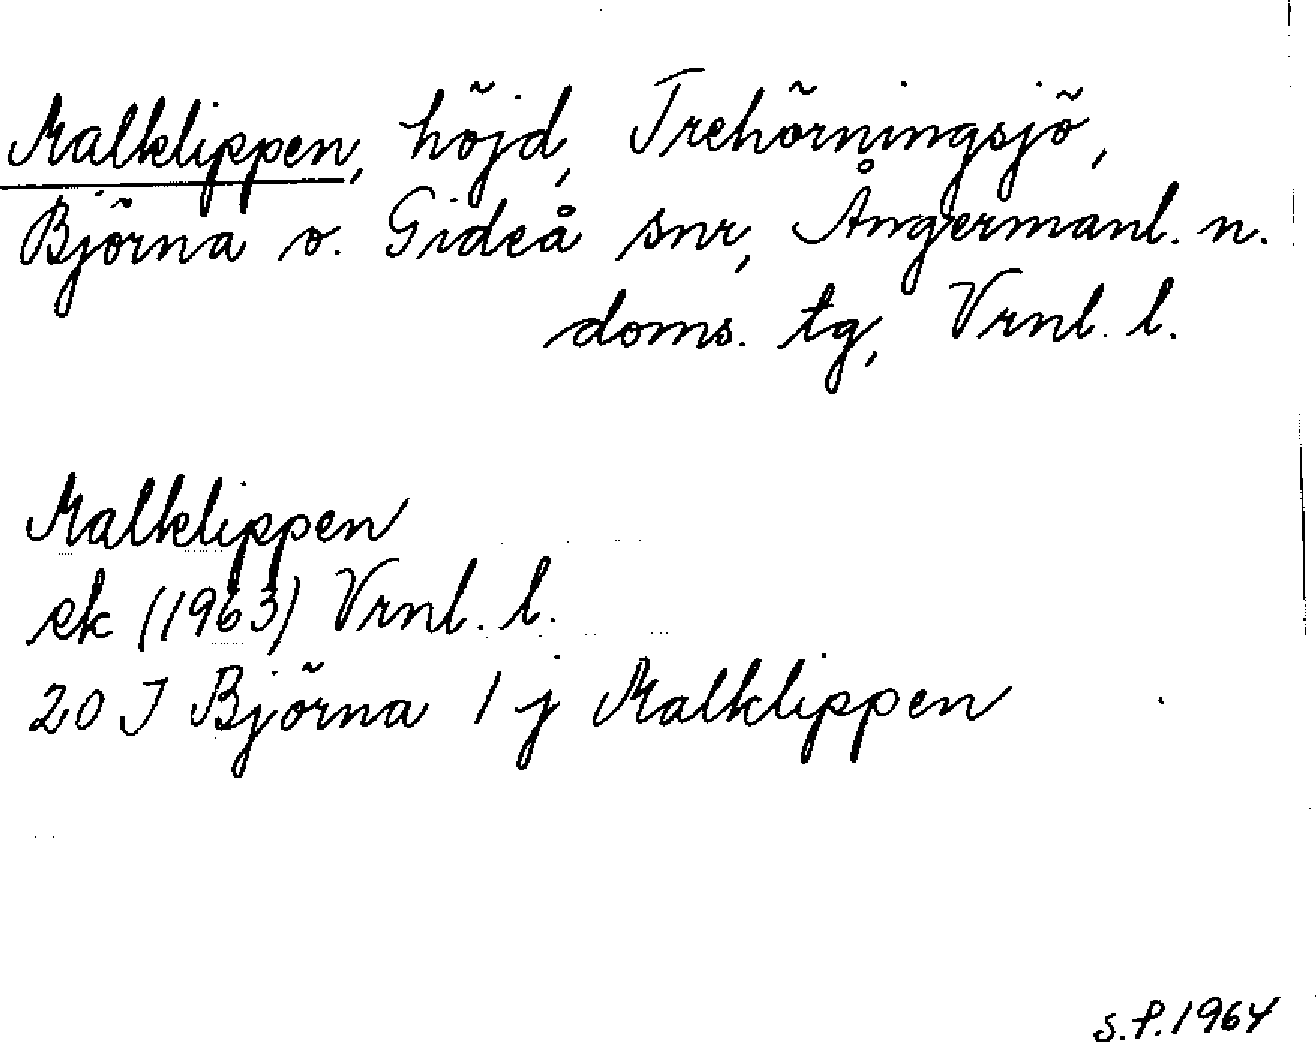 Malklippen, höjd, Trehörningsjö,
Björna o. Gideå snr, Ångermanl. n.
doms. tg, Vrnl. l.
Malklippen
ek (1963) Vrnl. l.
20 I Björna 1 j Malklippen
S.P. 1964